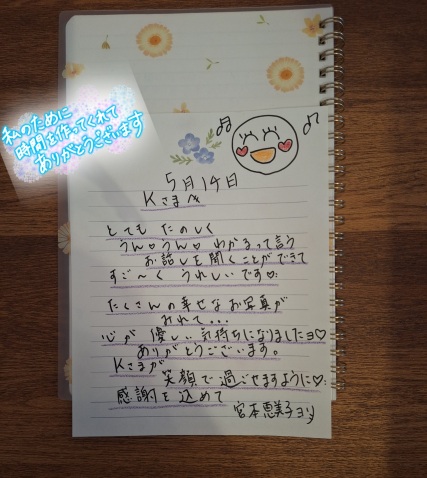 私のために
時間を作ってくれて
ありがとうございます
5月14日
Kさまへ
とても たのしく
うん♡うん♡ わかるって言う
お話しを聞くことができて
すご〜く うれしいです♡
たくさんの幸せなお写真が
みれて...
心が 優しい気持ちになりましたヨ♡
ありがとうございます。
Kさまが
笑顔で過ごせますように♡
感謝を込めて
宮本恵美子より